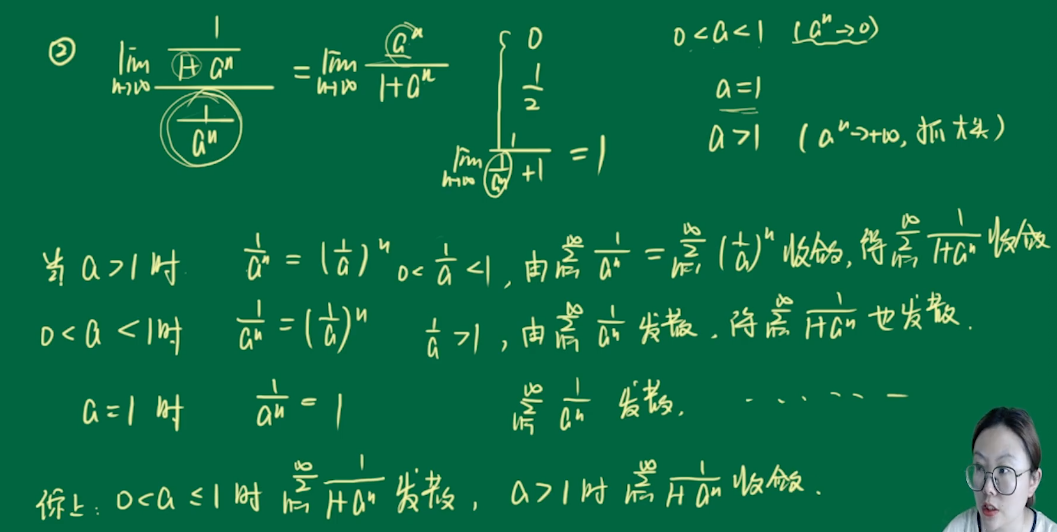 ② lim_{n→∞} \frac{\frac{1}{1+a^n}}{\frac{1}{a^n}} = lim_{n→∞} \frac{a^n}{1+a^n} { 0 0<a<1 (a^n→0)
\frac{1}{2} a=1
lim_{n→∞} \frac{1}{\frac{1}{a^n}+1} = 1 a>1 (a^n→+∞, 抓大头)
当 a>1 时 \frac{1}{a^n} = (\frac{1}{a})^n 0<\frac{1}{a}<1, 由 \sum_{n=1}^{∞} \frac{1}{a^n} = \sum_{n=1}^{∞} (\frac{1}{a})^n 收敛, 得 \sum_{n=1}^{∞} \frac{1}{1+a^n} 收敛
0<a<1时 \frac{1}{a^n} = (\frac{1}{a})^n \frac{1}{a}>1, 由 \sum_{n=1}^{∞} \frac{1}{a^n} 发散. 得 \sum_{n=1}^{∞} \frac{1}{1+a^n} 也发散.
a=1 时 \frac{1}{a^n} = 1 \sum_{n=1}^{∞} \frac{1}{a^n} 发散. ……
综上: 0<a≤1 时 \sum_{n=1}^{∞} \frac{1}{1+a^n} 发散, a>1 时 \sum_{n=1}^{∞} \frac{1}{1+a^n} 收敛.